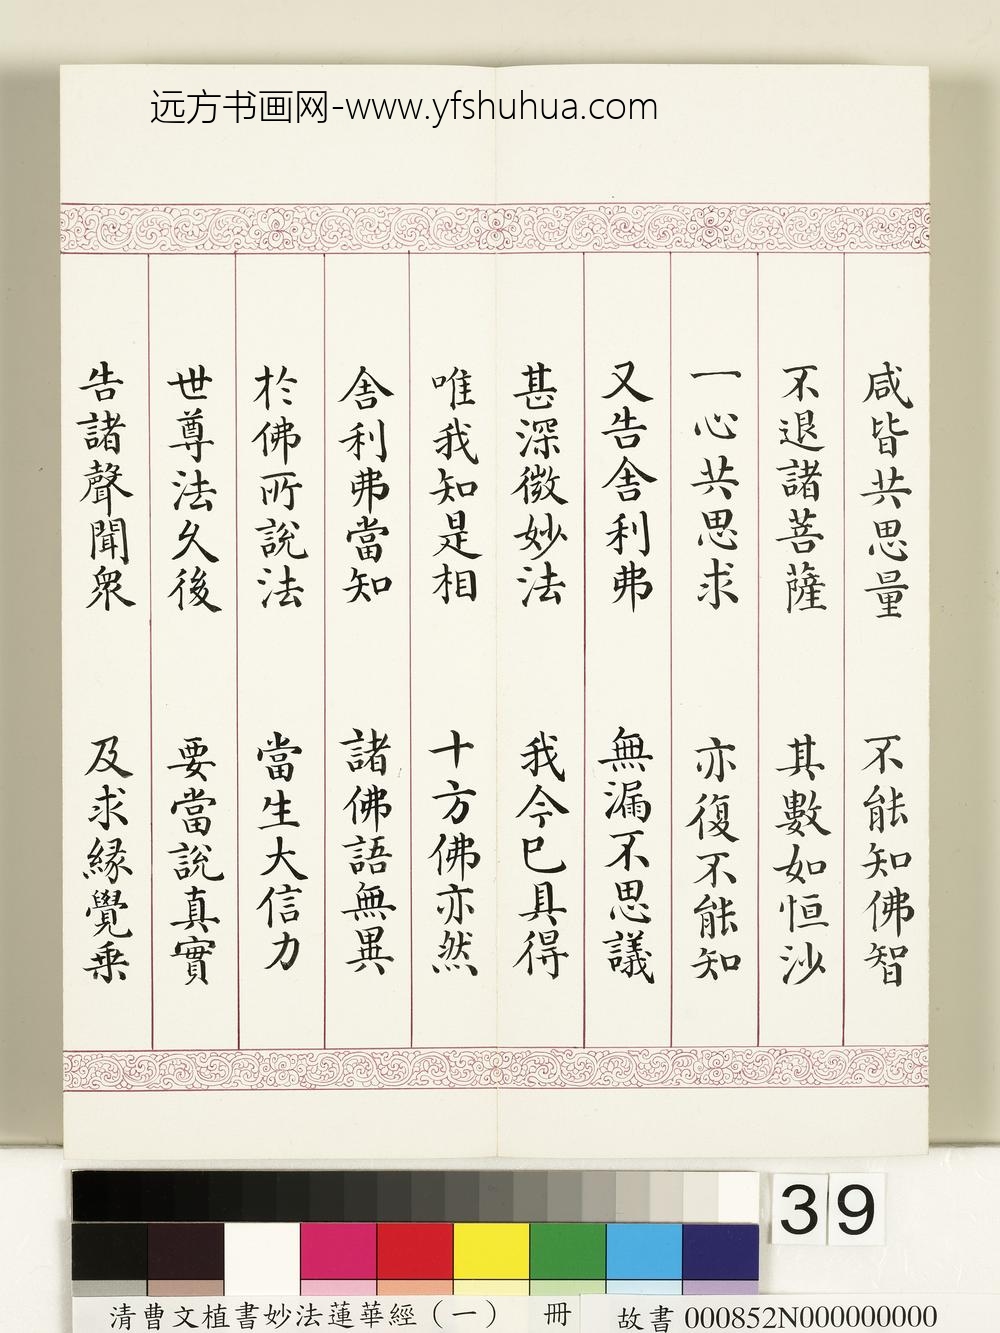 远方书画网-www.yfshuhua.com
咸皆共思量 不能知佛智
不退諸菩薩 其數如恒沙
一心共思求 亦復不能知
又告舍利弗 無漏不思議
甚深微妙法 我今已具得
唯我知是相 十方佛亦然
舍利弗當知 諸佛語無異
於佛所說法 當生大信力
世尊法久後 要當說真實
告諸聲聞衆 及求緣覺乘
39
清曹文植書妙法蓮華經(一) 冊 故書 000852N000000000